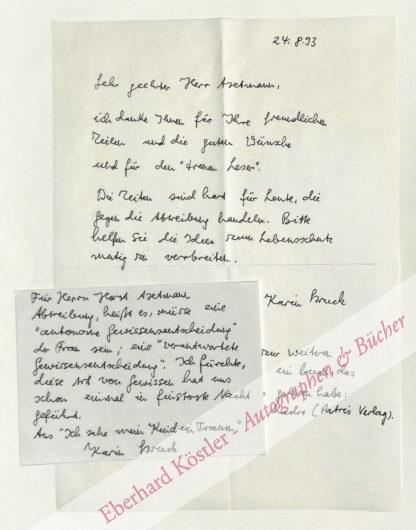 24.8.93
Sehr geehrter Herr Axtmann,
ich danke Ihnen für Ihre freundlichen
Zeilen und die guten Wünsche
und für den "treuen Leser".
Die Zeiten sind hart für Leute, die
gegen die Abtreibung handeln. Bitte
helfen Sie die Ideen zum Lebensschutz
mutig zu verbreiten.
Karin Struck
weiteren
ein das
habe:
(Patris Verlag).
Für Herrn Horst Axtmann
Abtreibung, heißt es, müsse eine
"autonome Gewissensentscheidung"
der Frau sein; eine "verantwortete
Gewissensentscheidung". Ich fürchte,
diese Art von Gewissen hat uns
schon einmal in finsterste Nacht
geführt.
Aus "Ich sehe mein Kind im Traum"
Karin Struck
Eberhard Köstler - Autographen & Bücher